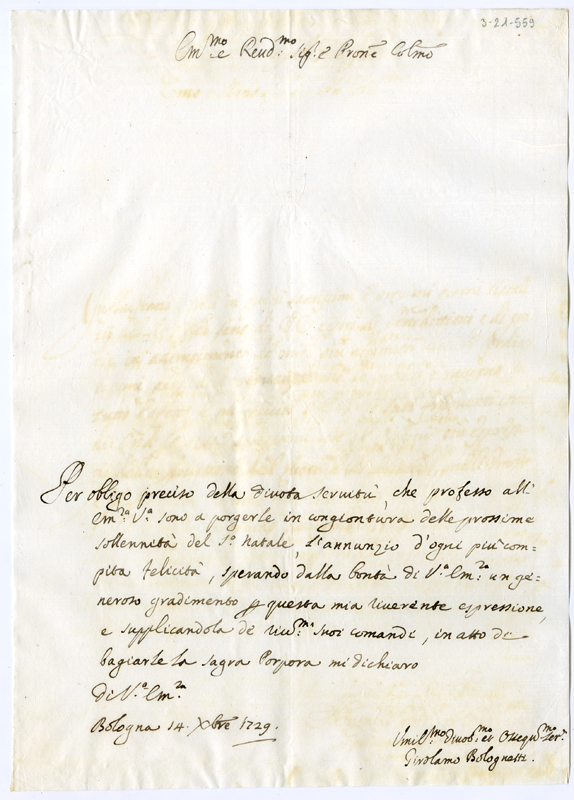 3-21-559
Em.mo e Reud.mo Sig.e Pron͠e Colmo
Per obligo preciso della diuota seruitù, che professo all'
Em.za V.a sono a porgerle in congiontura delle prossime
sollennità del S.o natale, l'annunzio d'ogni più com-
pita felicità, sperando dalla bontà di V.a Em.za un ge-
neroso gradimento p questa mia riuerente espressione,
e supplicandola de riu.mi suoi comandi, in atto di
bagiarle la sagra Porpora mi dichiaro
Di V.a Em.za
Bologna 14. Xbre 1729.
Umil.mo Diuot.mo et Ossequ.mo Ser.e
Girolamo Bolognetti.